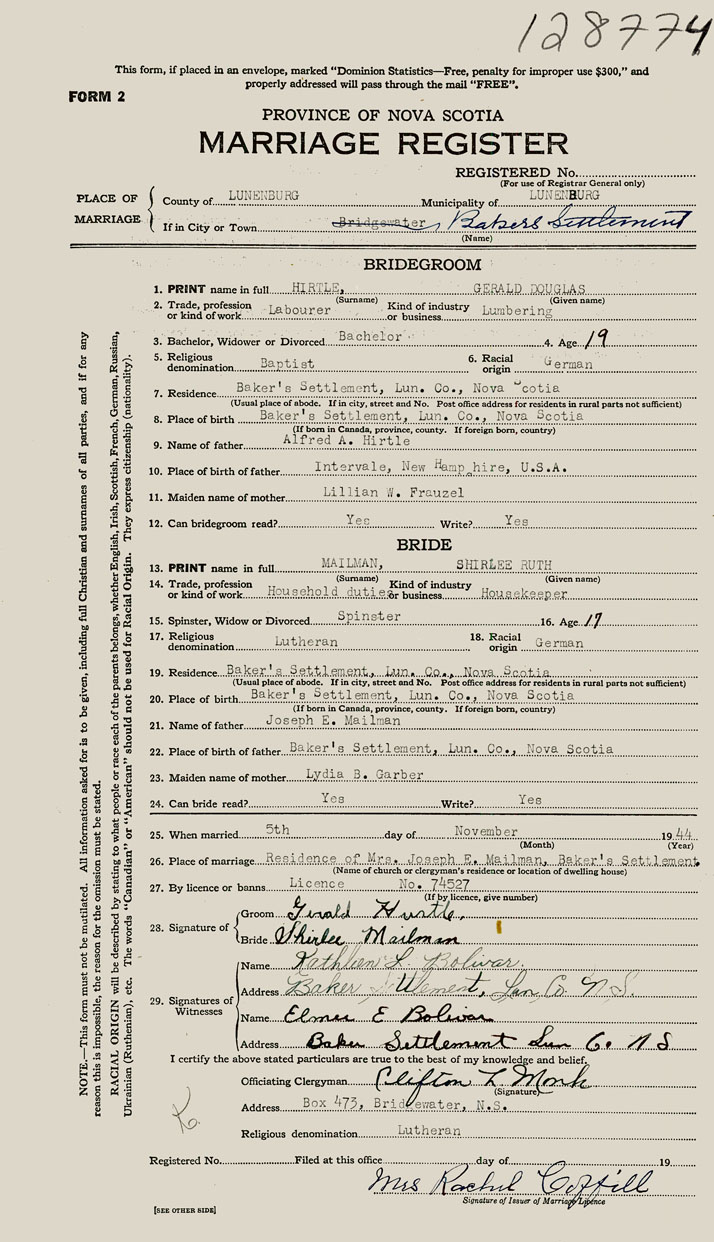 128774
This form, if placed in an envelope, marked “Dominion Statistics—Free, penalty for improper use $300,” and
properly addressed will pass through the mail “FREE”.
FORM 2
PROVINCE OF NOVA SCOTIA
MARRIAGE REGISTER
REGISTERED No.
(For use of Registrar General only)
PLACE OF MARRIAGE
County of LUNENBURG Municipality of LUNENBURG
If in City or Town Bridgewater Bakers Settlement
(Name)
BRIDEGROOM
1. PRINT name in full HIRTLE, GERALD DOUGLAS
(Surname) (Given name)
2. Trade, profession or kind of work Labourer Kind of industry or business Lumbering
3. Bachelor, Widower or Divorced Bachelor 4. Age 19
5. Religious denomination Baptist 6. Racial origin German
7. Residence Baker's Settlement, Lun. Co., Nova Scotia
(Usual place of abode. If in city, street and No. Post office address for residents in rural parts not sufficient)
8. Place of birth Baker's Settlement, Lun. Co., Nova Scotia
(If born in Canada, province, county. If foreign born, country)
9. Name of father Alfred A. Hirtle
10. Place of birth of father Intervale, New Hamp hire, U.S.A.
11. Maiden name of mother Lillian W. Frauzel
12. Can bridegroom read? Yes Write? Yes
BRIDE
13. PRINT name in full MAILMAN, SHIRLEE RUTH
(Surname) (Given name)
14. Trade, profession or kind of work Household duties Kind of industry or business Housekeeper
15. Spinster, Widow or Divorced Spinster 16. Age 17
17. Religious denomination Lutheran 18. Racial origin German
19. Residence Baker's Settlement, Lun. Co., Nova Scotia
(Usual place of abode. If in city, street and No. Post office address for residents in rural parts not sufficient)
20. Place of birth Baker's Settlement, Lun. Co., Nova Scotia
(If born in Canada, province, county. If foreign born, country)
21. Name of father Joseph E. Mailman
22. Place of birth of father Baker's Settlement, Lun. Co., Nova Scotia
23. Maiden name of mother Lydia B. Garber
24. Can bride read? Yes Write? Yes
25. When married 5th day of November 1944
(Month) (Year)
26. Place of marriage Residence of Mrs. Joseph E. Mailman, Baker's Settlement
(Name of church or clergyman's residence or location of dwelling house)
27. By licence or banns Licence No. 74527
(If by licence, give number)
28. Signature of
Groom Gerald Hirtle.
Bride Shirlee Mailman
29. Signatures of Witnesses
Name Kathleen L. Bolivar.
Address Baker Settlement, Lun Co. N S.
Name Elmer E Bolivar
Address Baker Settlement Lun Co. N S
I certify the above stated particulars are true to the best of my knowledge and belief.
Officiating Clergyman Clifton L. Monk
(Signature)
Address Box 473, Bridgewater, N.S.
Religious denomination Lutheran
Registered No. Filed at this office day of 19
Mrs Rachel Coffill
Signature of Issuer of Marriage Licence
[SEE OTHER SIDE]
NOTE.—This form must not be mutilated. All information asked for is to be given, including full Christian and surnames of all parties, and if for any
reason this is impossible, the reason for the omission must be stated.
RACIAL ORIGIN will be described by stating to what people or race each of the parents belongs, whether English, Irish, Scottish, French, German, Russian,
Ukrainian (Ruthenian), etc. The words “Canadian” or “American” should not be used for Racial Origin. They express citizenship (nationality).